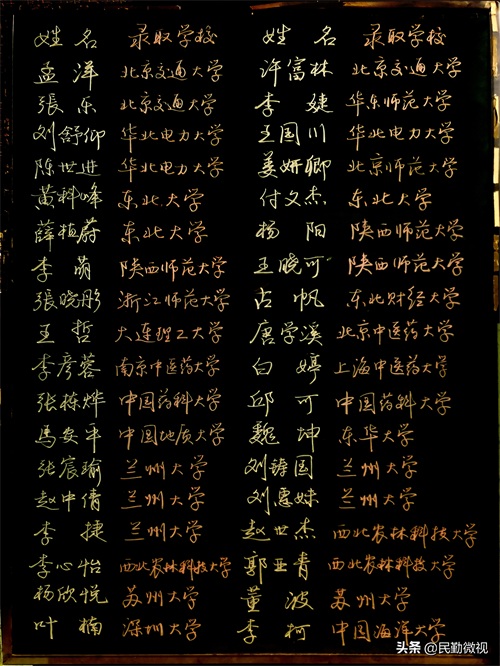 姓名 录取学校 姓名 录取学校
孟洋 北京交通大学 许富林 北京交通大学
張东 北京交通大学 李婕 华东师范大学
刘舒仰 华北电力大学 王国川 华北电力大学
陈世进 华北电力大学 姜妍卿 北京师范大学
黄科峰 东北大学 付文杰 东北大学
薛植蔚 东北大学 杨阳 陕西师范大学
李萌 陕西师范大学 王晓可 陕西师范大学
張晓彤 浙江师范大学 古帆 东北财经大学
王哲 大连理工大学 唐学溪 北京中医药大学
李彦蓉 南京中医药大学 白婷 上海中医药大学
张栋烨 中国药科大学 邱可 中国药科大学
馬安平 中国地质大学 魏坤 东华大学
张宸瑜 兰州大学 刘铸国 兰州大学
赵中倩 兰州大学 刘惠妹 兰州大学
李捷 兰州大学 赵世杰 西北农林科技大学
李心怡 西北农林科技大学 郭亚青 西北农林科技大学
杨欣悦 苏州大学 董波 苏州大学
叶楠 深圳大学 李柯 中国海洋大学
头条 @民勤微视